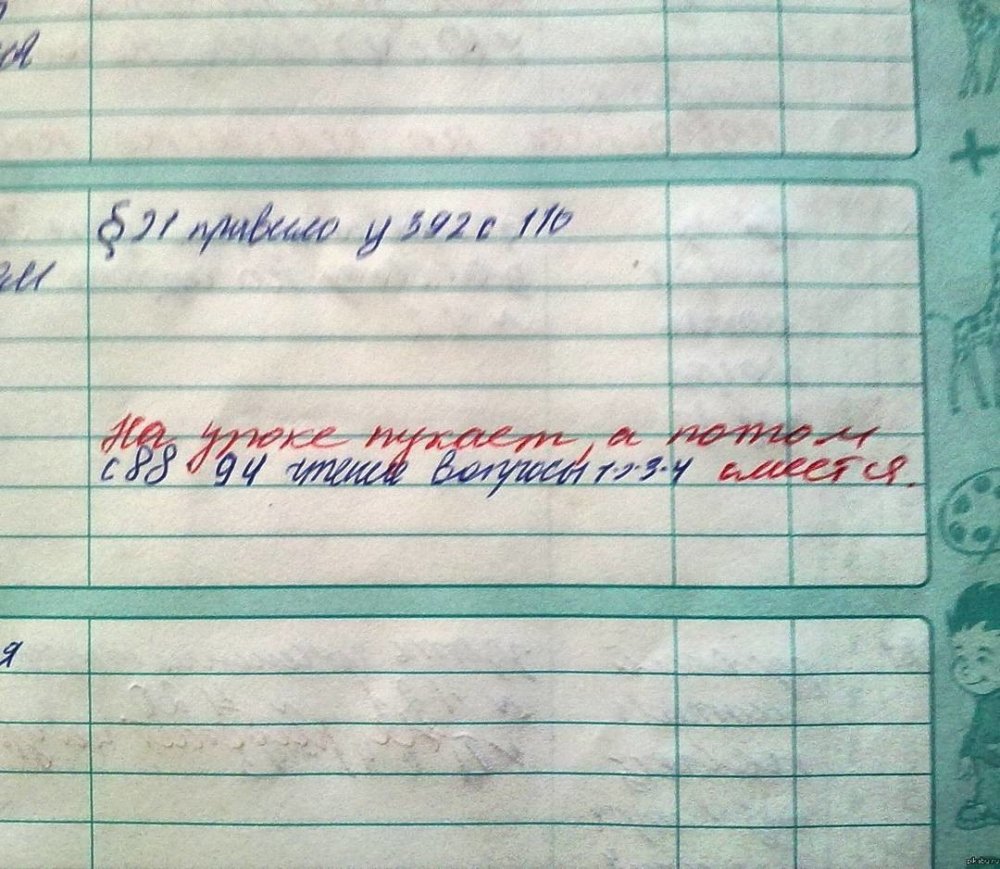 ся
§ 21 правило у 392 с 116
На уроке пукает, а потом
с 88 94 чтение вопросы 1-2-3-4 смеется.
я
pikabu.ru